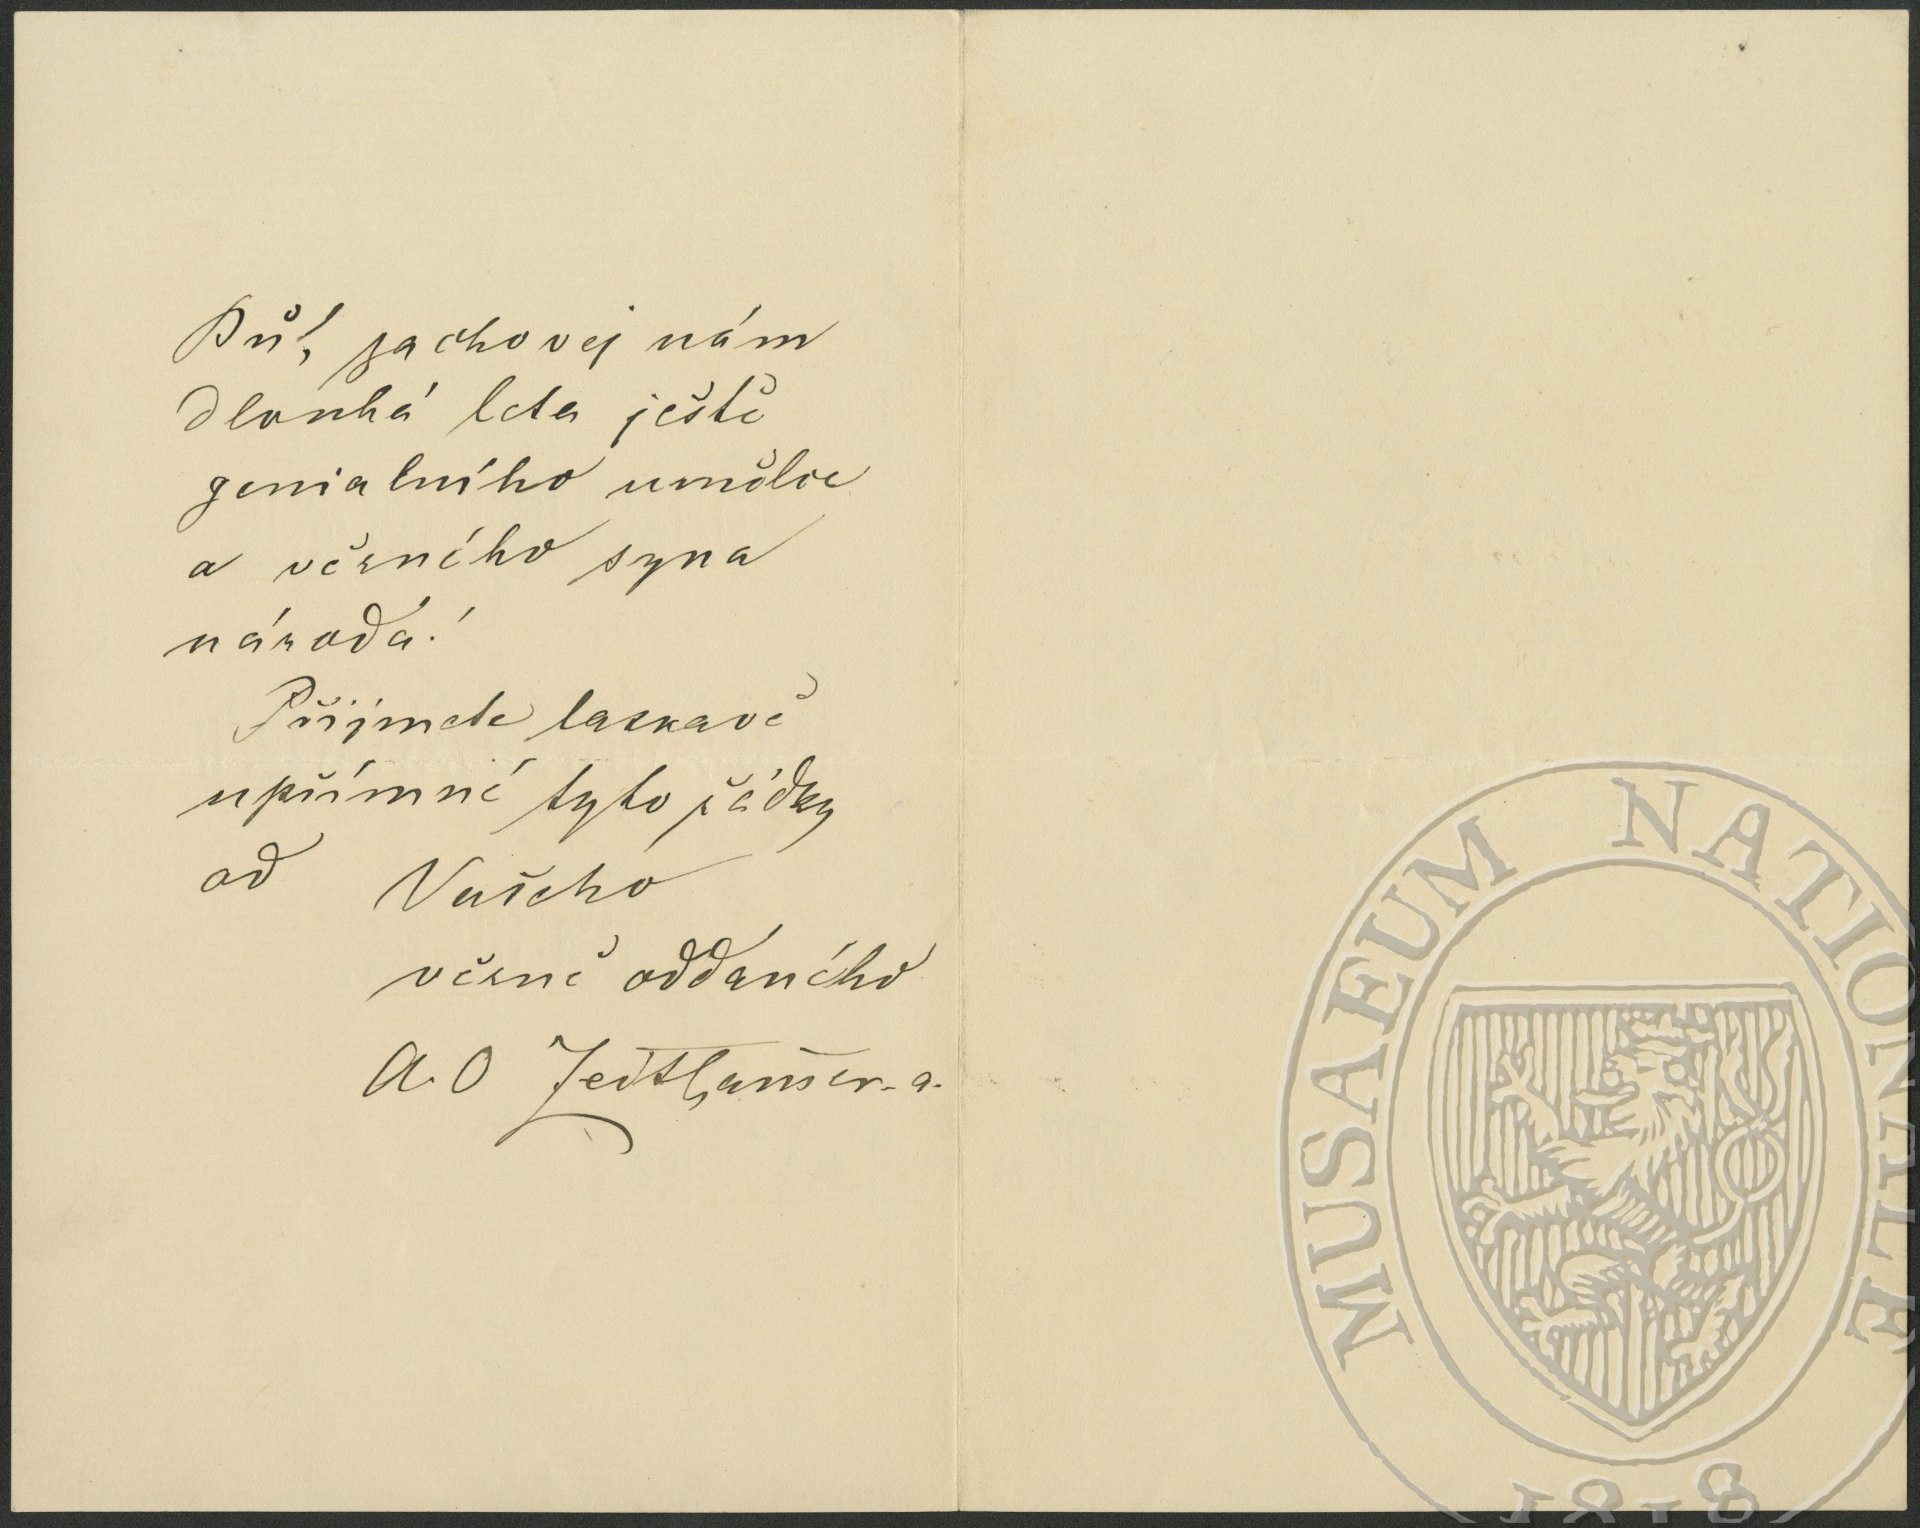 Bůh, zachovej nám
dlouhá leta ještě
genialního umělce
a věrného syna
národa!
Přijmete laskavě
upřímné tyto řádky
od Vašeho
věrně oddaného
A. O Zeithammer-a.
MUSAEUM NATIONALE
1818